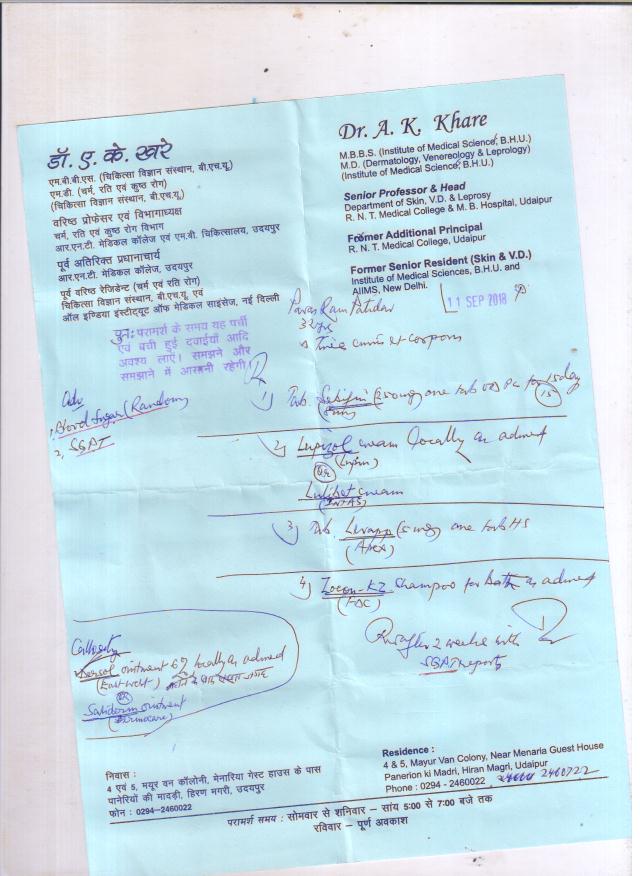 डॉ. ए. के. खरे
एम.बी.बी.एस. (चिकित्सा विज्ञान संस्थान, बी.एच.यू.)
एम.डी. (चर्म, रति एवं कुष्ठ रोग)
(चिकित्सा विज्ञान संस्थान, बी.एच.यू.)
वरिष्ठ प्रोफेसर एवं विभागाध्यक्ष
चर्म, रति एवं कुष्ठ रोग विभाग
आर.एन.टी. मेडिकल कॉलेज एवं एम.बी. चिकित्सालय, उदयपुर
पूर्व अतिरिक्त प्रधानाचार्य
आर.एन.टी. मेडिकल कॉलेज, उदयपुर
पूर्व वरिष्ठ रेजिडेन्ट (चर्म एवं रति रोग)
चिकित्सा विज्ञान संस्थान, बी.एच.यू. एवं
ऑल इण्डिया इंस्टीट्यूट ऑफ मेडिकल साइंसेज, नई दिल्ली
Dr. A. K. Khare
M.B.B.S. (Institute of Medical Science, B.H.U.)
M.D. (Dermatology, Venereology & Leprology)
(Institute of Medical Science, B.H.U.)
Senior Professor & Head
Department of Skin, V.D. & Leprosy
R. N. T. Medical College & M. B. Hospital, Udaipur
Former Additional Principal
R. N. T. Medical College, Udaipur
Former Senior Resident (Skin & V.D.)
Institute of Medical Sciences, B.H.U. and
AIIMS, New Delhi.
11 SEP 2018
पुनः परामर्श के समय यह पर्ची
एवं बची हुई दवाईयाँ आदि
अवश्य लाएं। समझने और
समझाने में आसानी रहेगी।
Paras Ram Patidar
Tinea cruris et corporis
Adv
1, Blood Sugar (Random)
2, SGAT
1) Tab. (250mg) one tab OD PC for 15 day
(15)
2) cream locally as advised
(Lupin)
OR
cream
(INTAS)
3) Tab. (5 mg) one tab HS
(Apex)
4) Zocon-KZ Shampoo for Bath as advised
(FDC)
R/v after 2 weeks with
SGAT reports
Callosity
ointment 6% locally as advised
(East West)
OR
ointment
निवास :
4 एवं 5, मयूर वन कॉलोनी, मेनारिया गेस्ट हाउस के पास
पानेरियों की मादड़ी, हिरण मगरी, उदयपुर
फोन : 0294-2460022
Residence :
4 & 5, Mayur Van Colony, Near Menaria Guest House
Panerion ki Madri, Hiran Magri, Udaipur
Phone : 0294 - 2460022 2460722
परामर्श समय : सोमवार से शनिवार – सांय 5:00 से 7:00 बजे तक
रविवार – पूर्ण अवकाश